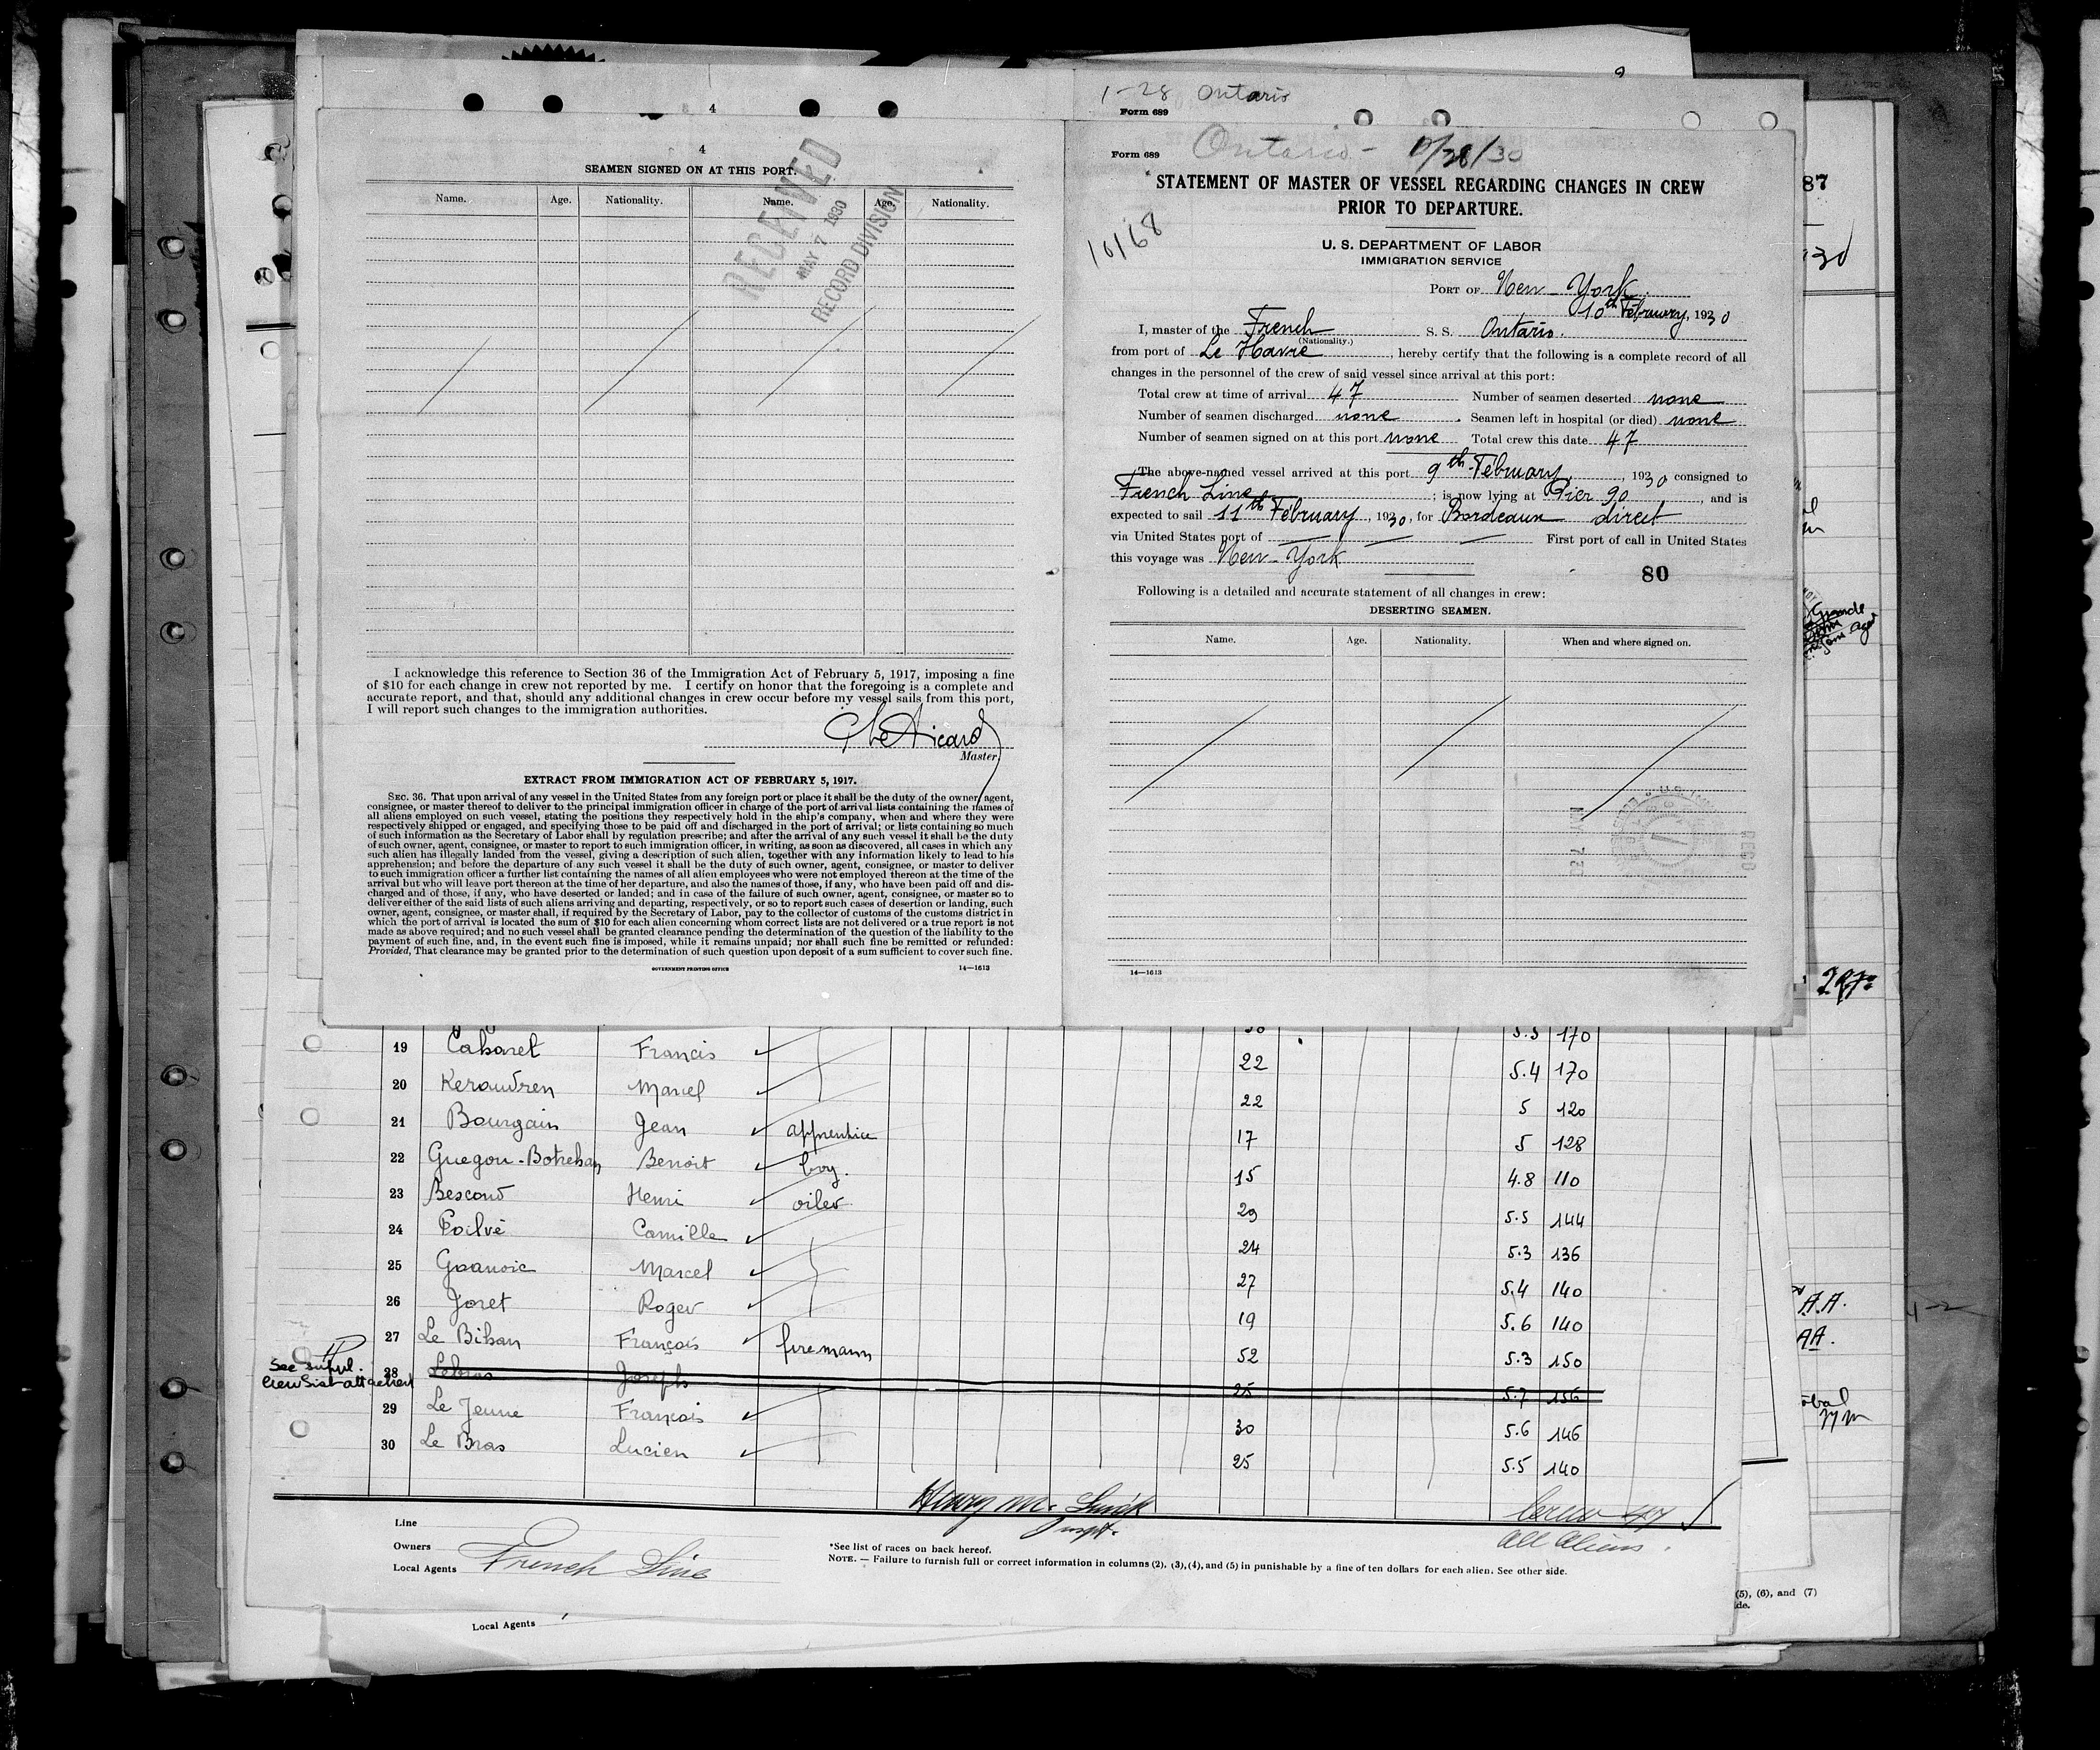 4
4
SEAMEN SIGNED ON AT THIS PORT.
Name. Age. Nationality. Name. Age. Nationality.
RECEIVED
MAY 7 1930
RECORD DIVISION
I acknowledge this reference to Section 36 of the Immigration Act of February 5, 1917, imposing a fine
of $10 for each change in crew not reported by me. I certify on honor that the foregoing is a complete and
accurate report, and that, should any additional changes in crew occur before my vessel sails from this port,
I will report such changes to the immigration authorities.
Master.
EXTRACT FROM IMMIGRATION ACT OF FEBRUARY 5, 1917.
SEC. 36. That upon arrival of any vessel in the United States from any foreign port or place it shall be the duty of the owner, agent,
consignee, or master thereof to deliver to the principal immigration officer in charge of the port of arrival lists containing the names of
all aliens employed on such vessel, stating the positions they respectively hold in the ship's company, when and where they were
respectively shipped or engaged, and specifying those to be paid off and discharged in the port of arrival; or lists containing so much
of such information as the Secretary of Labor shall by regulation prescribe; and after the arrival of any such vessel it shall be the duty
of such owner, agent, consignee, or master to report to such immigration officer, in writing, as soon as discovered, all cases in which any
such alien has illegally landed from the vessel, giving a description of such alien, together with any information likely to lead to his
apprehension; and before the departure of any such vessel it shall be the duty of such owner, agent, consignee, or master to deliver
to such immigration officer a further list containing the names of all alien employees who were not employed thereon at the time of the
arrival but who will leave port thereon at the time of her departure, and also the names of those, if any, who have been paid off and dis-
charged and of those, if any, who have deserted or landed; and in case of the failure of such owner, agent, consignee, or master so to
deliver either of the said lists of such aliens arriving and departing, respectively, or so to report such cases of desertion or landing, such
owner, agent, consignee, or master shall, if required by the Secretary of Labor, pay to the collector of customs of the customs district in
which the port of arrival is located the sum of $10 for each alien concerning whom correct lists are not delivered or a true report is not
made as above required; and no such vessel shall be granted clearance pending the determination of the question of the liability to the
payment of such fine, and, in the event such fine is imposed, while it remains unpaid; nor shall such fine be remitted or refunded:
Provided, That clearance may be granted prior to the determination of such question upon deposit of a sum sufficient to cover such fine.
GOVERNMENT PRINTING OFFICE 14—1613
1-28 Ontario
Form 689
Form 689 Ontario - /28/30
STATEMENT OF MASTER OF VESSEL REGARDING CHANGES IN CREW
PRIOR TO DEPARTURE.
10168
U. S. DEPARTMENT OF LABOR
IMMIGRATION SERVICE
PORT OF New-York
10th February, 1930
I, master of the French S. S. Ontario.
(Nationality.)
from port of Le Havre, hereby certify that the following is a complete record of all
changes in the personnel of the crew of said vessel since arrival at this port:
Total crew at time of arrival 47 Number of seamen deserted none
Number of seamen discharged none. Seamen left in hospital (or died) none
Number of seamen signed on at this port none Total crew this date 47
The above-named vessel arrived at this port 9th February, 1930 consigned to
French Line; is now lying at Pier 90, and is
expected to sail 11th February, 1930, for Bordeaux direct
via United States port of First port of call in United States
this voyage was New-York
80
Following is a detailed and accurate statement of all changes in crew:
DESERTING SEAMEN.
Name. Age. Nationality. When and where signed on.
14—1613
87
30
A.A.
AA.
5.5 170
19 Cabaret Francis 22 5.4 170
20 Keraudren Marcel 22 5 120
21 Bourgain Jean apprentice 17 5 128
22 Guegou-Botrehan Benoit boy. 15 4.8 110
23 Bescond Henri oiler 29 5.5 144
24 Poilvé Camille 24 5.3 136
25 Goanvic Marcel 27 5.4 140
26 Joret Roger 19 5.6 140
27 Le Bihan François firemann 52 5.3 150
See suppl.
Crew List attached
28 Lebras Joseph 25 5.7 156
29 Le Jeune François 30 5.6 146
30 Le Bras Lucien 25 5.5 140
Henry M.
Inspt.
Crew 47
All Aliens.
Line
Owners
Local Agents French Line
*See list of races on back hereof.
NOTE. — Failure to furnish full or correct information in columns (2), (3), (4), and (5) in punishable by a fine of ten dollars for each alien. See other side.
(5), (6), and (7)
de.
Local Agents